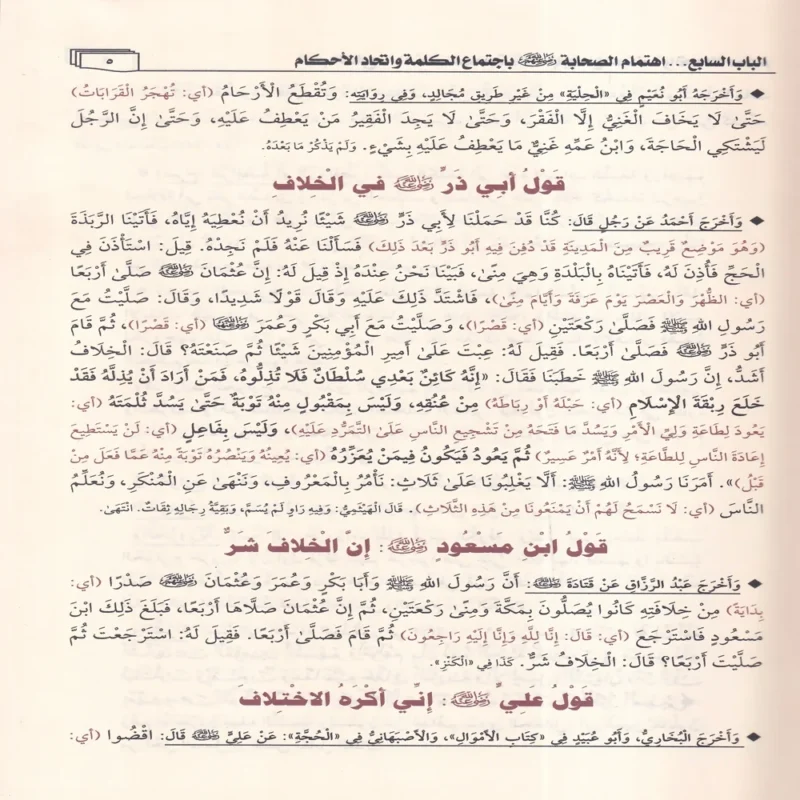 الباب السابع... اهتمام الصحابة رضي الله عنهم باجتماع الكلمة واتحاد الأحكام
٥
◆ وَأَخْرَجَهُ أَبُو نُعَيْمٍ فِي «الْحِلْيَةِ» مِنْ غَيْرِ طَرِيقِ مُجَالِدٍ، وَفِي رِوَايَتِهِ: وَتُقْطَعُ الْأَرْحَامُ (أي: تُهْجَرُ الْقَرَابَاتُ)
حَتَّىٰ لَا يَخَافَ الْغَنِيُّ إِلَّا الْفَقْرَ، وَحَتَّىٰ لَا يَجِدَ الْفَقِيرُ مَنْ يَعْطِفُ عَلَيْهِ، وَحَتَّىٰ إِنَّ الرَّجُلَ
لَيَشْتَكِي الْحَاجَةَ، وَابْنُ عَمِّهِ غَنِيٌّ مَا يَعْطِفُ عَلَيْهِ بِشَيْءٍ. وَلَمْ يَذْكُرْ مَا بَعْدَهُ.
قَوْلُ أَبِي ذَرٍّ رضي الله عنه فِي الْخِلَافِ
◆ وَأَخْرَجَ أَحْمَدُ عَنْ رَجُلٍ قَالَ: كُنَّا قَدْ حَمَلْنَا لِأَبِي ذَرٍّ رضي الله عنه شَيْئًا نُرِيدُ أَنْ نُعْطِيَهُ إِيَّاهُ، فَأَتَيْنَا الرَّبَذَةَ
(وَهُوَ مَوْضِعٌ قَرِيبٌ مِنَ الْمَدِينَةِ قَدْ دُفِنَ فِيهِ أَبُو ذَرٍّ بَعْدَ ذَلِكَ) فَسَأَلْنَا عَنْهُ فَلَمْ نَجِدْهُ. قِيلَ: اسْتَأْذَنَ فِي
الْحَجِّ فَأُذِنَ لَهُ، فَأَتَيْنَاهُ بِالْبَلْدَةِ وَهِيَ مِنًى، فَبَيْنَا نَحْنُ عِنْدَهُ إِذْ قِيلَ لَهُ: إِنَّ عُثْمَانَ رضي الله عنه صَلَّىٰ أَرْبَعًا
(أي: الظُّهْرَ وَالْعَصْرَ يَوْمَ عَرَفَةَ وَأَيَّامَ مِنًى)، فَاشْتَدَّ ذَلِكَ عَلَيْهِ وَقَالَ قَوْلًا شَدِيدًا، وَقَالَ: صَلَّيْتُ مَعَ
رَسُولِ اللهِ ﷺ فَصَلَّىٰ رَكْعَتَيْنِ (أي: قَصْرًا)، وَصَلَّيْتُ مَعَ أَبِي بَكْرٍ وَعُمَرَ رضي الله عنهما (أي: قَصْرًا)، ثُمَّ قَامَ
أَبُو ذَرٍّ رضي الله عنه فَصَلَّىٰ أَرْبَعًا. فَقِيلَ لَهُ: عِبْتَ عَلَىٰ أَمِيرِ الْمُؤْمِنِينَ شَيْئًا ثُمَّ صَنَعْتَهُ؟ قَالَ: الْخِلَافُ
أَشَدُّ، إِنَّ رَسُولَ اللهِ ﷺ خَطَبَنَا فَقَالَ: «إِنَّهُ كَائِنٌ بَعْدِي سُلْطَانٌ فَلَا تُذِلُّوهُ، فَمَنْ أَرَادَ أَنْ يُذِلَّهُ فَقَدْ
خَلَعَ رِبْقَةَ الْإِسْلَامِ (أي: حَبْلَهُ أَوْ رِبَاطَهُ) مِنْ عُنُقِهِ، وَلَيْسَ بِمَقْبُولٍ مِنْهُ تَوْبَةٌ حَتَّىٰ يَسُدَّ ثُلْمَتَهُ (أي:
يَعُودَ لِطَاعَةِ وَلِيِّ الْأَمْرِ وَيَسُدَّ مَا فَتَحَهُ مِنْ تَشْجِيعِ النَّاسِ عَلَىٰ التَّمَرُّدِ عَلَيْهِ)، وَلَيْسَ بِفَاعِلٍ (أي: لَنْ يَسْتَطِيعَ
إِعَادَةَ النَّاسِ لِلطَّاعَةِ؛ لِأَنَّهُ أَمْرٌ عَسِيرٌ) ثُمَّ يَعُودُ فَيَكُونُ فِيمَنْ يُعَزِّرُهُ (أي: يُعِينُهُ وَيَنْصُرُهُ تَوْبَةً مِنْهُ عَمَّا فَعَلَ مِنْ
قَبْلُ)». أَمَرَنَا رَسُولُ اللهِ ﷺ: أَلَّا يَغْلِبُونَا عَلَىٰ ثَلَاثٍ: نَأْمُرُ بِالْمَعْرُوفِ، وَنَنْهَى عَنِ الْمُنْكَرِ، وَنُعَلِّمُ
النَّاسَ (أي: لَا نَسْمَحُ لَهُمْ أَنْ يَمْنَعُونَا مِنْ هَذِهِ الثَّلَاثِ). قَالَ الْهَيْثَمِيُّ: وَفِيهِ رَاوٍ لَمْ يُسَمَّ، وَبَقِيَّةُ رِجَالِهِ ثِقَاتٌ. انْتَهَىٰ.
قَوْلُ ابْنِ مَسْعُودٍ رضي الله عنه: إِنَّ الْخِلَافَ شَرٌّ
◆ وَأَخْرَجَ عَبْدُ الرَّزَّاقِ عَنْ قَتَادَةَ رضي الله عنه: أَنَّ رَسُولَ اللهِ ﷺ وَأَبَا بَكْرٍ وَعُمَرَ وَعُثْمَانَ رضي الله عنهم صَدْرًا (أي:
بِدَايَةً) مِنْ خِلَافَتِهِ كَانُوا يُصَلُّونَ بِمَكَّةَ وَمِنًى رَكْعَتَيْنِ، ثُمَّ إِنَّ عُثْمَانَ صَلَّاهَا أَرْبَعًا، فَبَلَغَ ذَلِكَ ابْنَ
مَسْعُودٍ فَاسْتَرْجَعَ (أي: قَالَ: إِنَّا لِلَّهِ وَإِنَّا إِلَيْهِ رَاجِعُونَ) ثُمَّ قَامَ فَصَلَّىٰ أَرْبَعًا. فَقِيلَ لَهُ: اسْتَرْجَعْتَ ثُمَّ
صَلَّيْتَ أَرْبَعًا؟ قَالَ: الْخِلَافُ شَرٌّ. كَذَا فِي «الْكَنْزِ».
قَوْلُ عَلِيٍّ رضي الله عنه: إِنِّي أَكْرَهُ الِاخْتِلَافَ
◆ وَأَخْرَجَ الْبُخَارِيُّ، وَأَبُو عُبَيْدٍ فِي «كِتَابِ الْأَمْوَالِ»، وَالْأَصْبَهَانِيُّ فِي «الْحُجَّةِ»: عَنْ عَلِيٍّ رضي الله عنه قَالَ: اقْضُوا (أي: